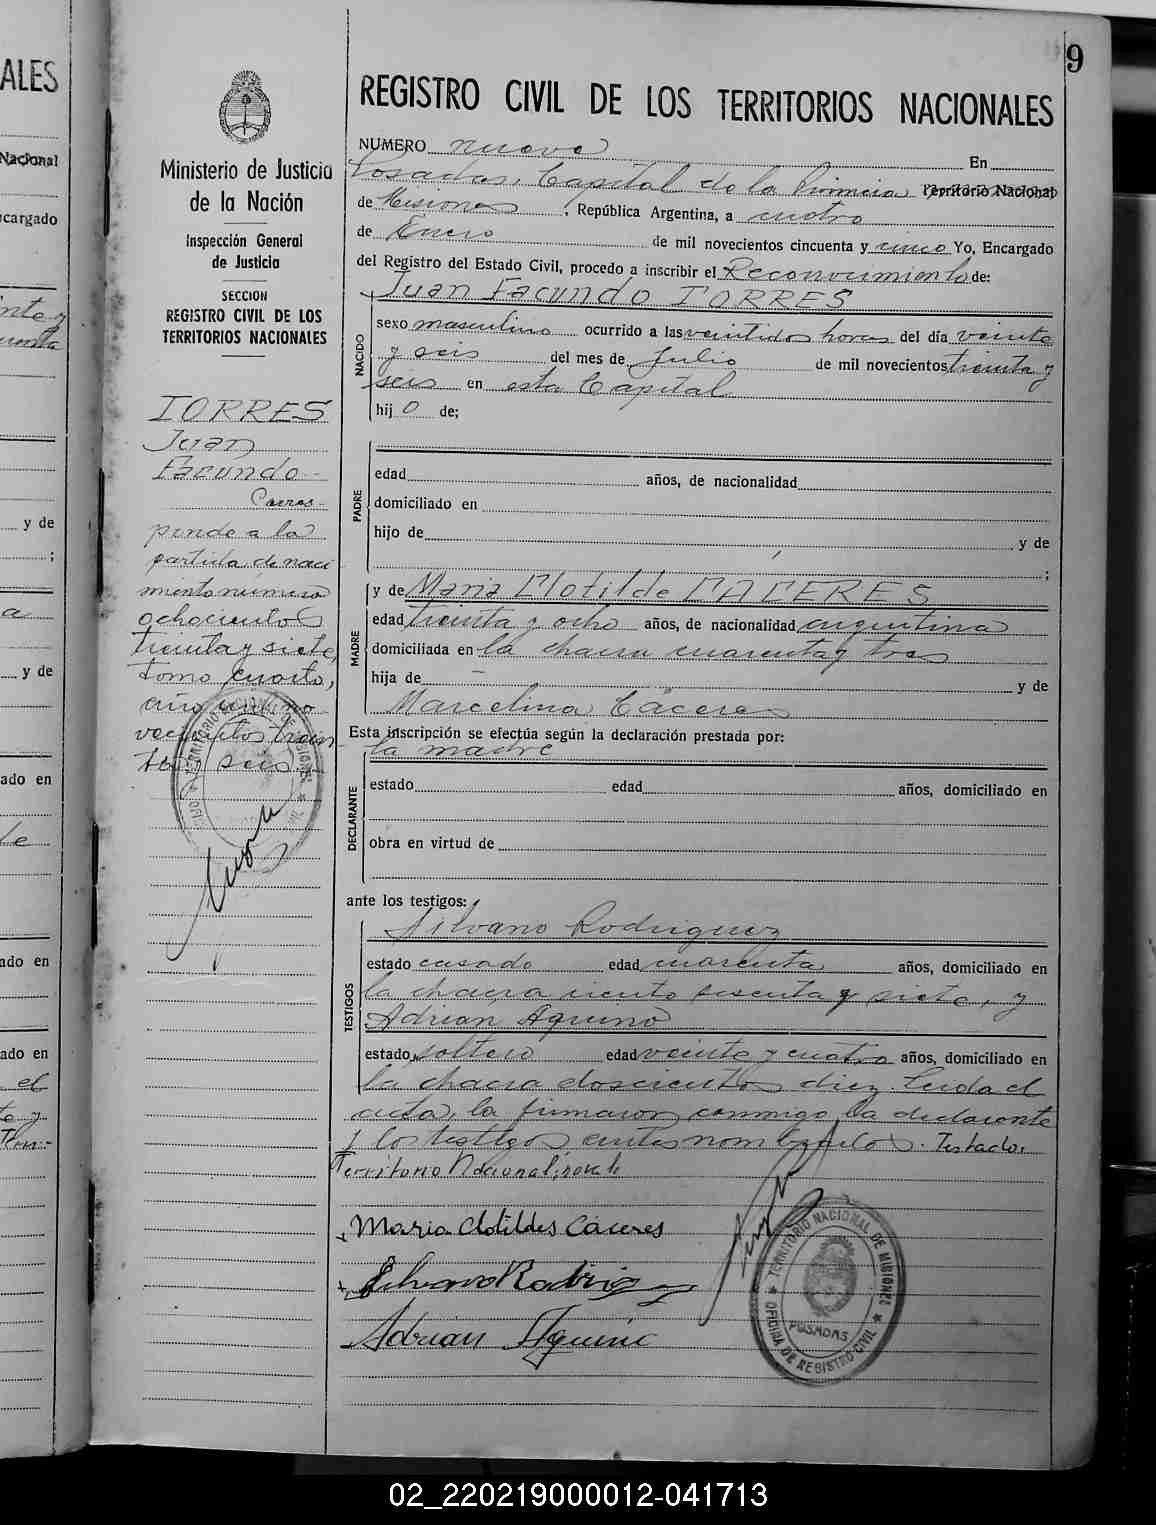 9
REGISTRO CIVIL DE LOS TERRITORIOS NACIONALES
NUMERO nueve En
Posadas, Capital de la Provincia Territorio Nacional
de Misiones, República Argentina, a cuatro
de Enero de mil novecientos cincuenta y cinco Yo, Encargado
del Registro del Estado Civil, procedo a inscribir el Reconocimiento de:
Juan Facundo TORRES
NACIDO
sexo masculino ocurrido a las veintidos horas del día veinte
y seis del mes de Julio de mil novecientos treinta y
seis en esta Capital
hijo de;
PADRE
edad años, de nacionalidad
domiciliado en
hijo de y de
;
MADRE
y de Maria Clotilde CACERES
edad treinta y ocho años, de nacionalidad argentina
domiciliada en la chacra cuarenta y tres
hija de — y de
Marcelina Cáceres
Esta inscripción se efectúa según la declaración prestada por:
la madre
DECLARANTE
estado edad años, domiciliado en
obra en virtud de
ante los testigos:
TESTIGOS
Silvano Rodriguez
estado casado edad cuarenta años, domiciliado en
la chacra ciento sesenta y siete, y
Adrian Aquino
estado soltero edad veinte y cuatro años, domiciliado en
la chacra doscientos diez. Leida el
acta, la firmaron conmigo, la declarante
y los testigos antes nombrados. Testado:
Territorio Nacional: no vale
Maria Clotildes Cáceres
Silvano Rodriguez
Adrian Aquino
TERRITORIO NACIONAL DE MISIONES
POSADAS
OFICINA DE REGISTRO CIVIL
Ministerio de Justicia
de la Nación
Inspección General
de Justicia
SECCION
REGISTRO CIVIL DE LOS
TERRITORIOS NACIONALES
TORRES
Juan
Facundo
Corres-
ponde a la
partida de naci
miento número
ochocientos
treinta y siete,
tomo cuarto,
año mil no
vecientos trein
ta y seis.
ALES
Nacional
ncargado
y de
;
y de
ado en
ado en
ado en
02_220219000012-041713